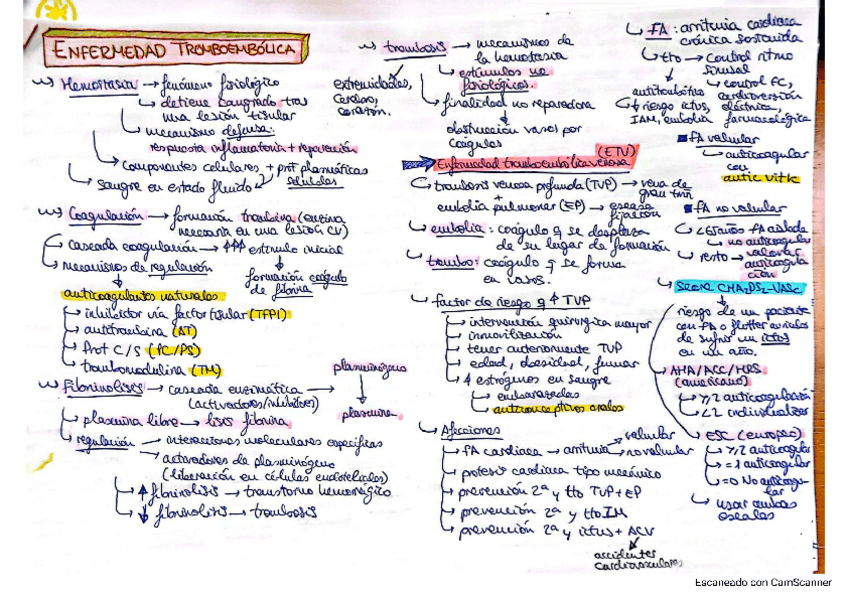 ENFERMEDAD TROMBOEMBÓLICA
Hemostasia → fenómeno fisiológico
detiene sangrado tras
una lesión tisular
mecanismo defensa:
respuesta inflamatoria + reparación
componentes celulares + prot plasmáticas
sangre en estado fluido
células
Coagulación → formación trombina (enzima
necesaria en una lesión CV)
cascada coagulación → ↑↑↑ estímulo inicial
mecanismos de regulación
formación coágulo
de fibrina
anticoagulantes naturales
inhibidor vía factor tisular (TFPI)
antitrombina (AT)
Prot C/S (PC/PS)
trombomodulina (TM)
Fibrinolisis → cascada enzimática →
(activadores/inhibidores)
plasminógeno
plasmina
plasmina libre → lisis fibrina
regulación → interacciones moleculares específicas
activadores de plasminógeno
(liberación en células endoteliales)
↑ fibrinolisis → transtorno hemorrágico
↓ fibrinolisis → trombosis
trombosis → mecanismos de
la hemostasia
estímulos no
fisiológicos.
extremidades,
cerebro,
corazón.
finalidad no reparadora
obstrucción vasos por
coágulos
Enfermedad tromboembólica venosa (ETV)
trombosis venosa profunda (TVP) → vena de
gran tmñ
+
embolia pulmonar (EP) → escasa
fijación
embolia: coágulo q se desplaza
de su lugar de formación
trombo: coágulo q se forma
en vasos.
factor de riesgo q ↑ TVP
intervención quirúrgica mayor
inmovilización
tener anteriormente TVP
edad, obesidad, fumar
↑ estrógenos en sangre
embarazadas
anticonceptivos orales
Afecciones
FA cardiaca → arritmia
valvular
no valvular
protesis cardiaca tipo mecánico
prevención 2ª y tto TVP + EP
prevención 2ª y tto IM
prevención 2ª y ictus + ACV
accidentes
cardiovasculares
FA: arritmia cardiaca
crónica sostenida
tto → control ritmo
sinusal
control FC,
cardioversión
eléctrica,
farmacológica
antitrombótico
↓ riesgo ictus,
IAM, embolia
FA valvular
anticoagular
con
antic vit K
FA no valvular
<65 años FA aislada
no anticoagular
resto → valorar
anticoagula
ción
SCORE CHA2DS2-VASC
riesgo de un paciente
con FA o flutter auricular
de sufrir un ictus
en un año.
AHA/ACC/HRS
(americano)
≥2 anticoagulación
<2 individualizar
ESC (europeo)
≥2 anticoagular
=1 anticoagular
=0 No anticoagu-
lar
usar ambas
escalas
Escaneado con CamScanner